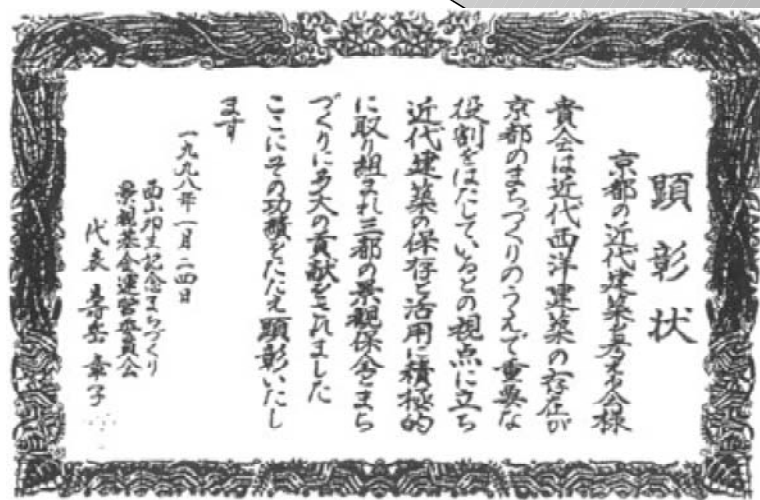 顕彰状
京都の近代建築を考える会様
貴会は近代西洋建築の存在が
京都のまちづくりのうえで重要な
役割をはたしているとの視点に立ち
近代建築の保存と活用に積極的
に取り組まれ三都の景観保全とまち
づくりに多大の貢献をされました
ここにその功績をたたえ顕彰いたし
ます
一九九八年一月二四日
西山卯三記念まちづくり
景観基金運営委員会
代表 寿岳章子